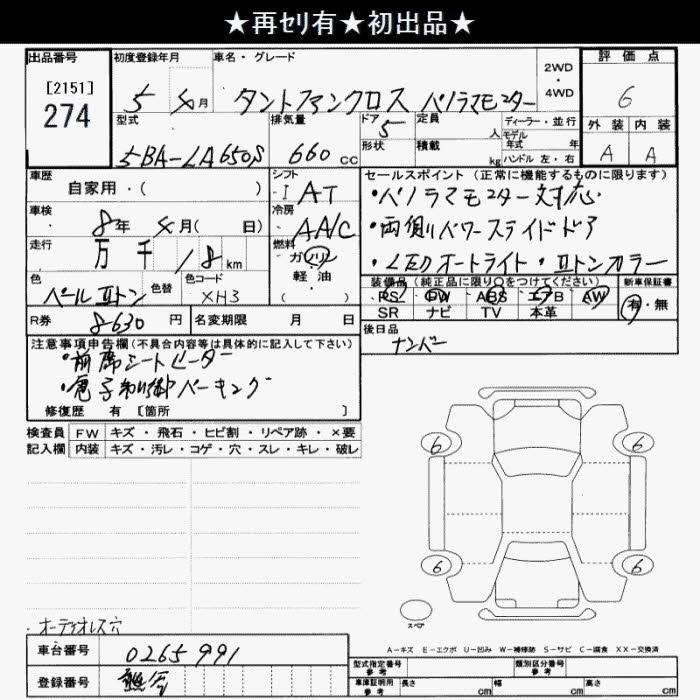 ★再セリ有★初出品★
出品番号 初度登録年月 車名・グレード 2WD・4WD 評価点
[2151]
274
5 4月 タントファンクロス パノラマモニター 6
型式 排気量 ドア 5 定員 人 ディーラー・並行 外装 内装
モデル年式 年式
5BA-LA650S 660cc 形状 積載 kg ハンドル 左・右 A A
車歴 シフト セールスポイント (正常に機能するものに限ります)
自家用・( ) I AT ・パノラマモニター対応
車検 冷房 ・両側パワースライドドア
8年 4月( 日) AA/C ・LEDオートライト・IIトンカラー
走行 万 千 18km 燃料 ガソリン
軽・油
( )
色 色替 色コード
パールIIトン XH3
装備品 (純正品に限り○をつけてください) 新車保証書
PS PW ABS エアB AW 有・無
SR ナビ TV 本革
R券 8630円 名変期限 月 日 後日品
ナンバー
注意事項申告欄(不具合内容等は具体的に記入して下さい)
・前席シートヒーター
・電子制御パーキング
修復歴 有 [箇所 ]
検査員 FW キズ・飛石・ヒビ割・リペア跡・×要
記入欄 内装 キズ・汚レ・コゲ・穴・スレ・キレ・破レ
6 6
6 6
スペア
・オーディオレス穴
A-キズ E-エクボ U-凹み W-補修跡 S-サビ C-腐食 XX-交換済
車台番号 0265991
登録番号
型式指定番号 参考 類別区分番号 参考
車庫証明用 参考 長さ cm 幅 cm 高さ cm